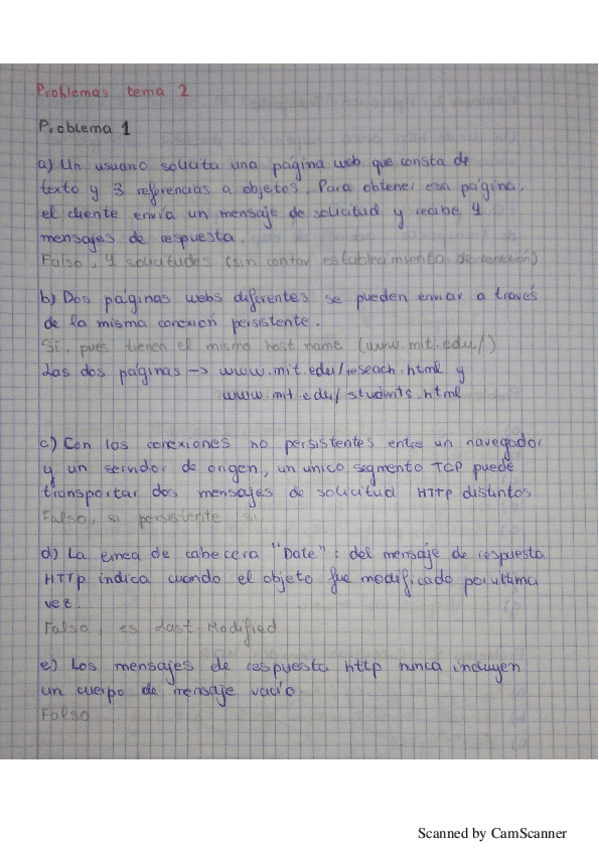 Problemas tema 2
Problema 1
a) Un usuario solicita una página web que consta de
texto y 3 referencias a objetos. Para obtener esa página,
el cliente envía un mensaje de solicitud y recibe 4
mensajes de respuesta.
Falso, 4 solicitudes (sin contar establecimiento de conexión)
b) Dos páginas webs diferentes se pueden enviar a través
de la misma conexión persistente.
Si, pues tienen el mismo host name (www.mit.edu/)
Las dos páginas -> www.mit.edu/reseach.html y
www.mit.edu/students.html
c) Con las conexiones no persistentes entre un navegador
y un servidor de origen, un unico segmento TCP puede
transportar dos mensajes de solicitud HTTP distintos
Falso, si persistente si
d) La linea de cabecera "Date": del mensaje de respuesta
HTTP indica cuando el objeto fue modificado por ultima
vez.
Falso, es Last-Modified
e) Los mensajes de respuesta http nunca incluyen
un cuerpo de mensaje vacío.
Falso
Scanned by CamScanner